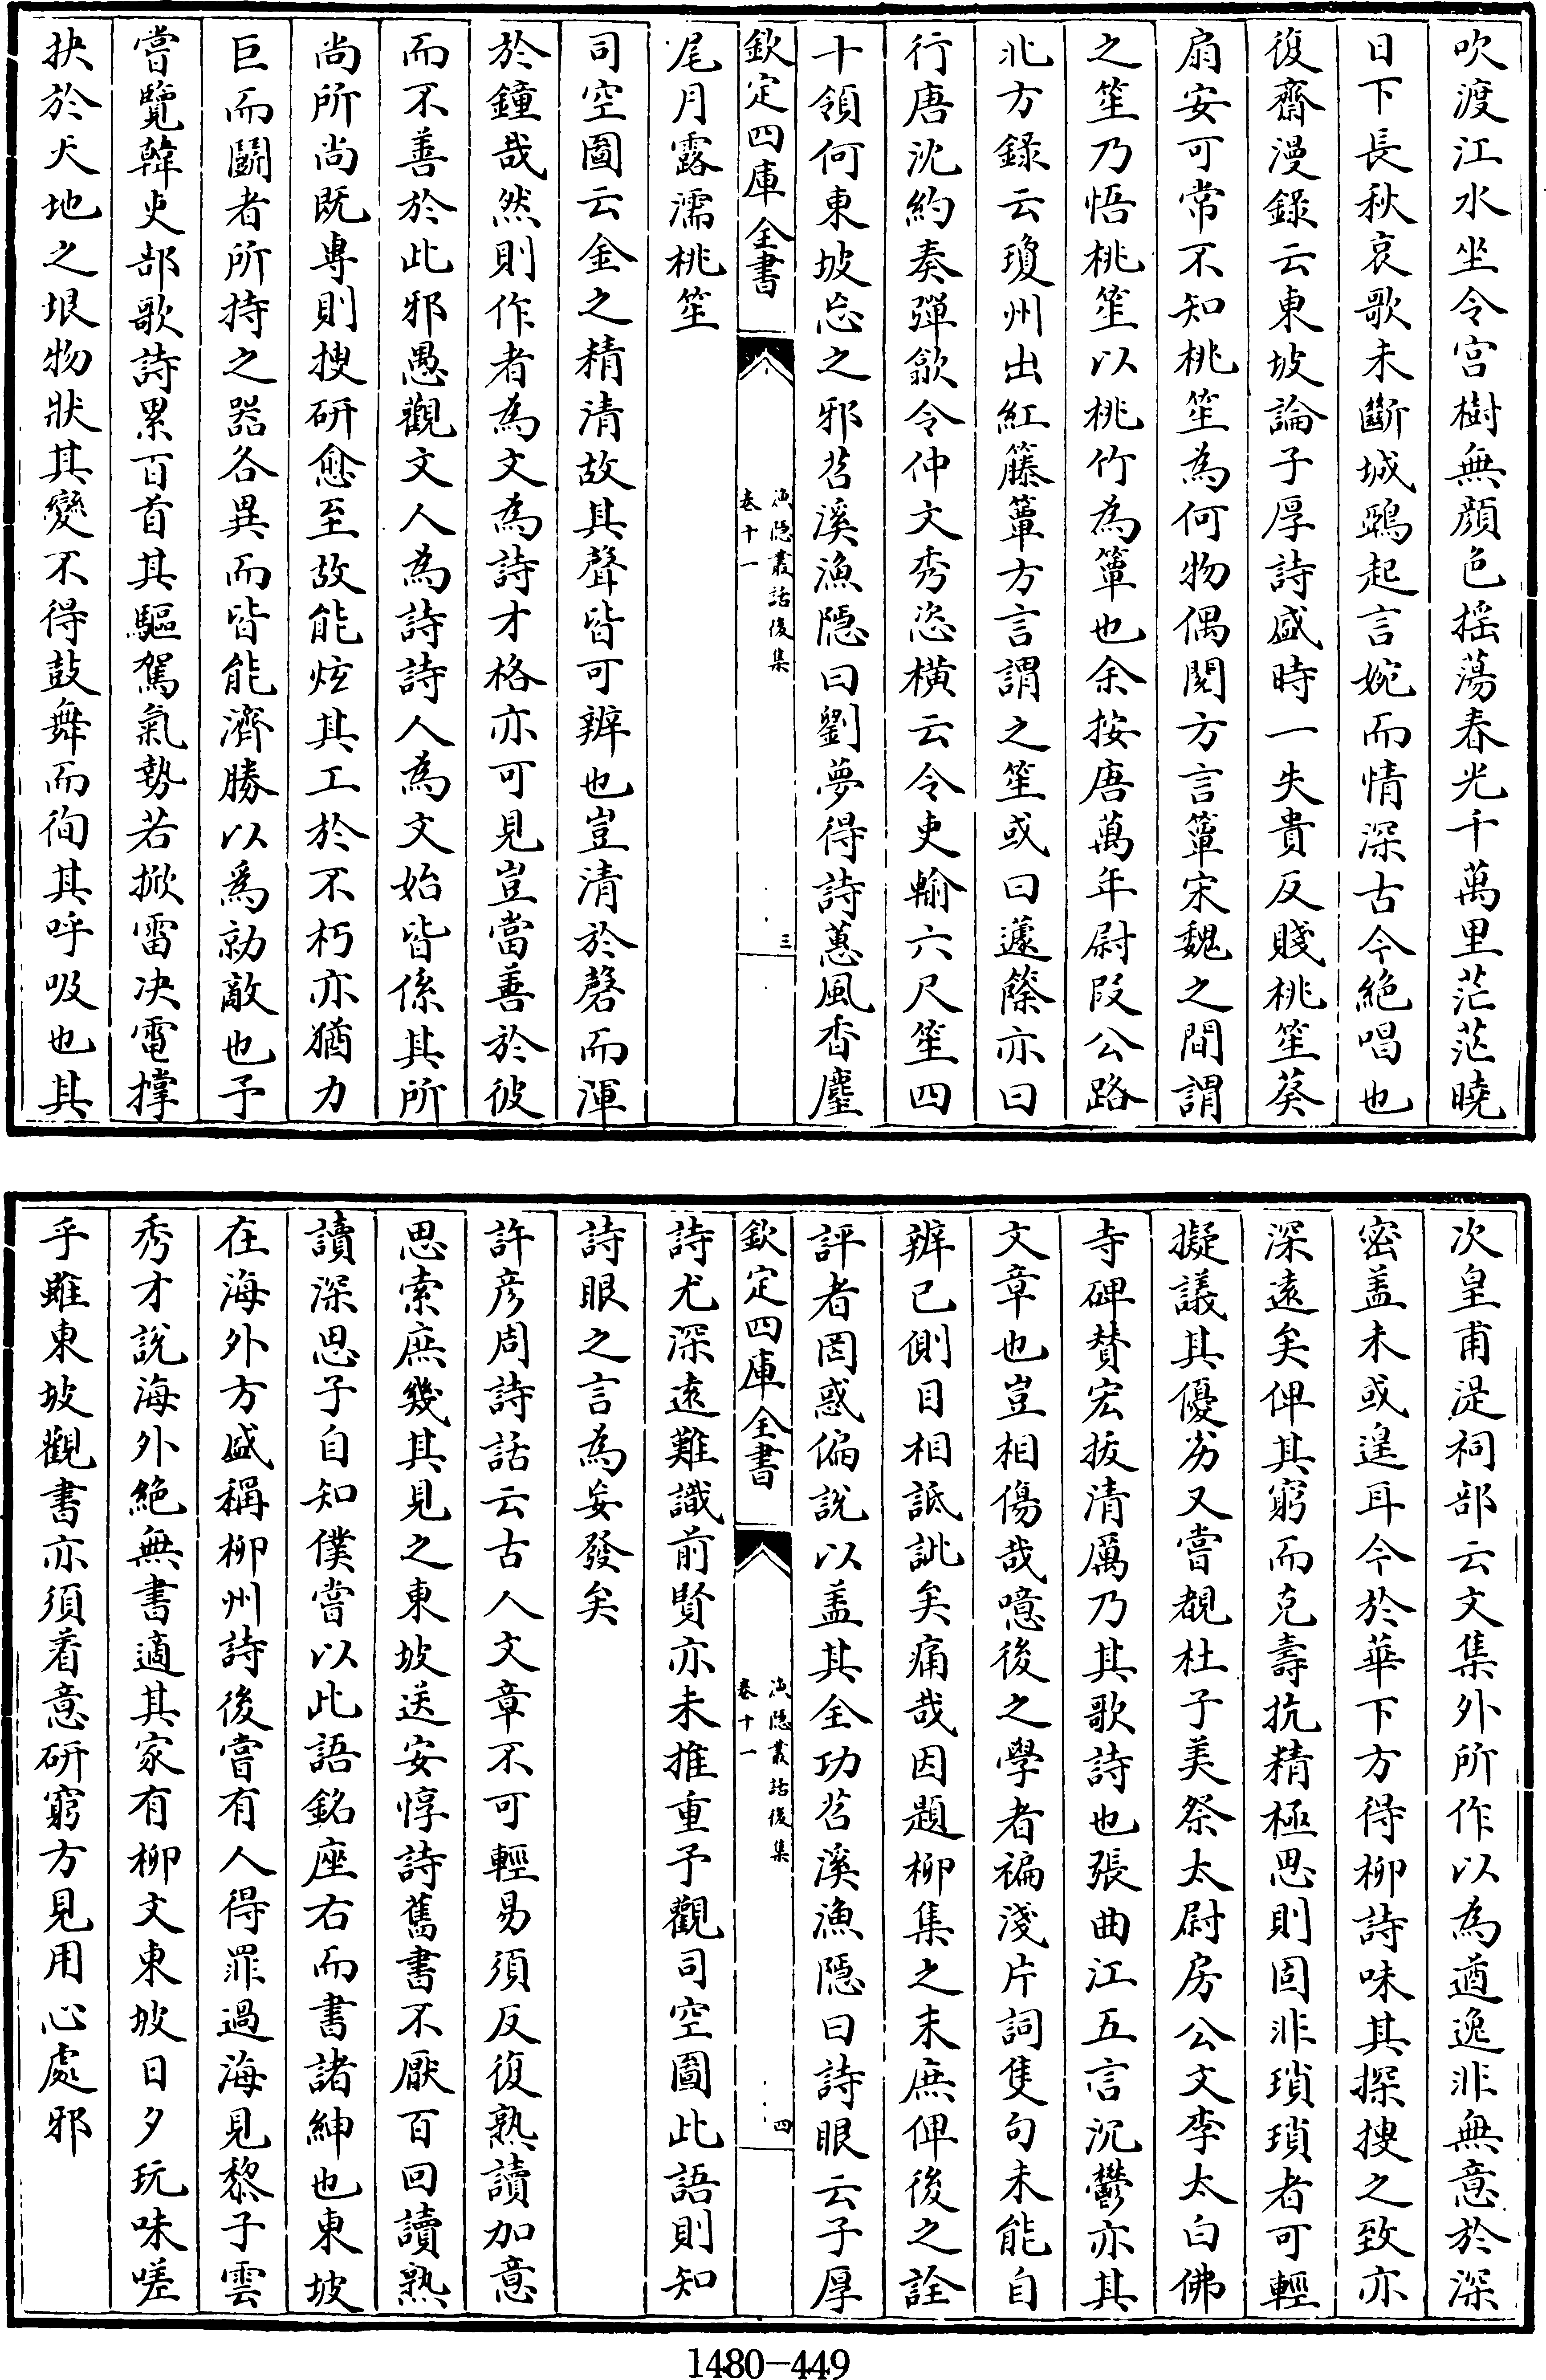 吹渡江水坐令宫樹無顔色揺蕩春光千萬里茫茫曉
日下長秋哀歌未斷城鵶起言婉而情深古今絶唱也
復齋漫錄云東坡論子厚詩盛時一失貴反賤桃笙葵
扇安可常不知桃笙為何物偶閲方言簟宋魏之間謂
之笙乃悟桃笙以桃竹為簟也余按唐萬年尉段公路
北方錄云瓊州出紅籐簟方言謂之笙或曰籧篨亦曰
行唐沈約奏彈歙令仲文秀恣橫云令吏輸六尺笙四
十領何東坡忘之邪苕溪漁隱曰劉夢得詩蕙風香麈
欽定四庫全書
漁隱叢話後集
卷十一
三
尾月露濡桃笙
司空圖云金之精清故其聲皆可辨也豈清於磬而渾
於鐘哉然則作者為文為詩才格亦可見豈當善於彼
而不善於此邪愚觀文人為詩詩人為文始皆係其所
尚所尚既專則搜研愈至故能炫其工於不朽亦猶力
巨而鬭者所持之器各異而皆能濟勝以爲勍敵也予
嘗覽韓吏部歌詩累百首其驅駕氣勢若掀雷決電撑
抉於天地之垠物狀其變不得鼓舞而徇其呼吸也其
次皇甫湜祠部云文集外所作以為遒逸非無意於深
密盖未或遑耳今於華下方得柳詩味其探搜之致亦
深遠矣俾其窮而克壽抗精極思則固非瑣瑣者可輕
擬議其優劣又嘗覩杜子美祭太尉房公文李太白佛
寺碑賛宏拔清厲乃其歌詩也張曲江五言沉鬱亦其
文章也豈相傷哉噫後之學者褊淺片詞隻句未能自
辨已側目相詆訾矣痛哉因題柳集之末庶俾後之詮
評者罔惑偏說以盖其全功苕溪漁隱曰詩眼云子厚
欽定四庫全書
漁隱叢話後集
卷十一
四
詩尤深遠難識前賢亦未推重予觀司空圖此語則知
詩眼之言為妄發矣
許彦周詩話云古人文章不可輕易須反復熟讀加意
思索庶幾其見之東坡送安惇詩舊書不厭百回讀熟
讀深思子自知僕嘗以此語銘座右而書諸紳也東坡
在海外方盛稱柳州詩後嘗有人得罪過海見黎子雲
秀才說海外絶無書適其家有柳文東坡日夕玩味嗟
乎雖東坡觀書亦須着意研窮方見用心處邪
1480-449